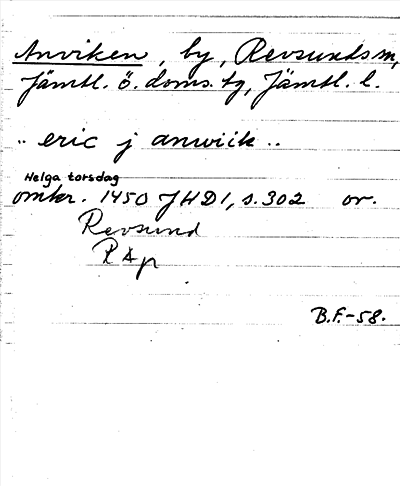 Anviken, by, Revsunds sn,
Jämtl. ö. doms. tg, Jämtl. l.
.. eric j anwiik ..
Helga torsdag
omkr. 1450 JHD1, s. 302 or.
Revsund
RAp
B.F.-58.